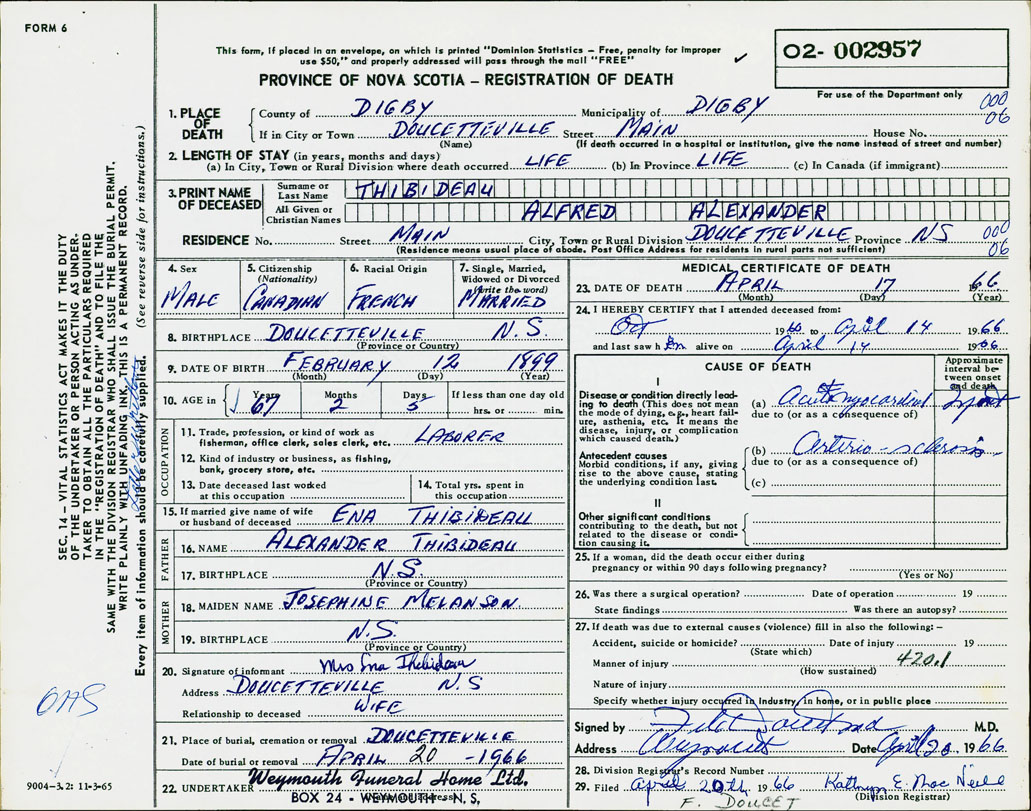 FORM 6
This form, if placed in an envelope, on which is printed "Dominion Statistics – Free, penalty for improper
use $50," and properly addressed will pass through the mail "FREE"
O2- 002957
PROVINCE OF NOVA SCOTIA – REGISTRATION OF DEATH
For use of the Department only
000
06
1. PLACE OF DEATH
County of DIGBY Municipality of DIGBY
If in City or Town DOUCETTEVILLE Street MAIN House No.
(Name) (If death occurred in a hospital or institution, give the name instead of street and number)
2. LENGTH OF STAY (in years, months and days)
(a) In City, Town or Rural Division where death occurred LIFE (b) In Province LIFE (c) In Canada (if immigrant)
3. PRINT NAME OF DECEASED
Surname or Last Name THIBIDEAU
All Given or Christian Names ALFRED ALEXANDER
RESIDENCE No. MAIN Street City, Town or Rural Division DOUCETTEVILLE Province NS
000
06
(Residence means usual place of abode. Post Office Address for residents in rural parts not sufficient)
4. Sex MALE
5. Citizenship (Nationality) CANADIAN
6. Racial Origin FRENCH
7. Single, Married, Widowed or Divorced (Write the word) MARRIED
8. BIRTHPLACE DOUCETTEVILLE N.S.
(Province or Country)
9. DATE OF BIRTH FEBRUARY 12 1899
(Month) (Day) (Year)
10. AGE in Years 67 Months 2 Days 5 If less than one day old
hrs. or min.
OCCUPATION
11. Trade, profession, or kind of work as
fisherman, office clerk, sales clerk, etc. LABORER
12. Kind of industry or business, as fishing,
bank, grocery store, etc.
13. Date deceased last worked
at this occupation
14. Total yrs. spent in
this occupation
15. If married give name of wife
or husband of deceased ENA THIBIDEAU
FATHER
16. NAME ALEXANDER THIBIDEAU
17. BIRTHPLACE N.S.
(Province or Country)
MOTHER
18. MAIDEN NAME JOSEPHINE MELANSON
19. BIRTHPLACE N.S.
(Province or Country)
20. Signature of informant Mrs Ena Thibideau
Address DOUCETTEVILLE N.S
Relationship to deceased WIFE
21. Place of burial, cremation or removal DOUCETTEVILLE
Date of burial or removal APRIL 20 - 1966
22. UNDERTAKER Weymouth Funeral Home Ltd.
BOX 24 - WEYMOUTH, N. S.
MEDICAL CERTIFICATE OF DEATH
23. DATE OF DEATH APRIL 17 1966
(Month) (Day) (Year)
24. I HEREBY CERTIFY that I attended deceased from:
Oct 1960 to April 14 1966
and last saw him alive on April 14 1966
CAUSE OF DEATH
Approximate interval between onset and death
I
Disease or condition directly leading to death (This does not mean the mode of dying, e.g., heart failure, asthenia, etc. It means the disease, injury, or complication which caused death.)
(a) Acute myocardial
due to (or as a consequence of)
Antecedent causes
Morbid conditions, if any, giving rise to the above cause, stating the underlying condition last.
(b) Arterio-sclerosis
due to (or as a consequence of)
(c)
II
Other significant conditions
contributing to the death, but not
related to the disease or condition causing it.
25. If a woman, did the death occur either during
pregnancy or within 90 days following pregnancy?
(Yes or No)
26. Was there a surgical operation? Date of operation 19
State findings Was there an autopsy?
27. If death was due to external causes (violence) fill in also the following:–
Accident, suicide or homicide? Date of injury 19
(State which)
Manner of injury 420.1
(How sustained)
Nature of injury
Specify whether injury occurred in industry, in home, or in public place
Signed by M.D.
Address Weymouth Date April 20, 1966
28. Division Registrar's Record Number
29. Filed April 20th 1966 Kathryn E. MacNeill
(Division Registrar)
F. DOUCET
SEC. 14 – VITAL STATISTICS ACT MAKES IT THE DUTY
OF THE UNDERTAKER OR PERSON ACTING AS UNDER-
TAKER TO OBTAIN ALL THE PARTICULARS REQUIRED
IN THE "REGISTRATION OF DEATH" AND TO FILE THE
SAME WITH THE DIVISION REGISTRAR WHO SHALL ISSUE THE BURIAL PERMIT.
WRITE PLAINLY WITH UNFADING INK. THIS IS A PERMANENT RECORD.
Every item of information should be carefully supplied. (See reverse side for instructions.)
OAS
9004-3.2: 11-3-65